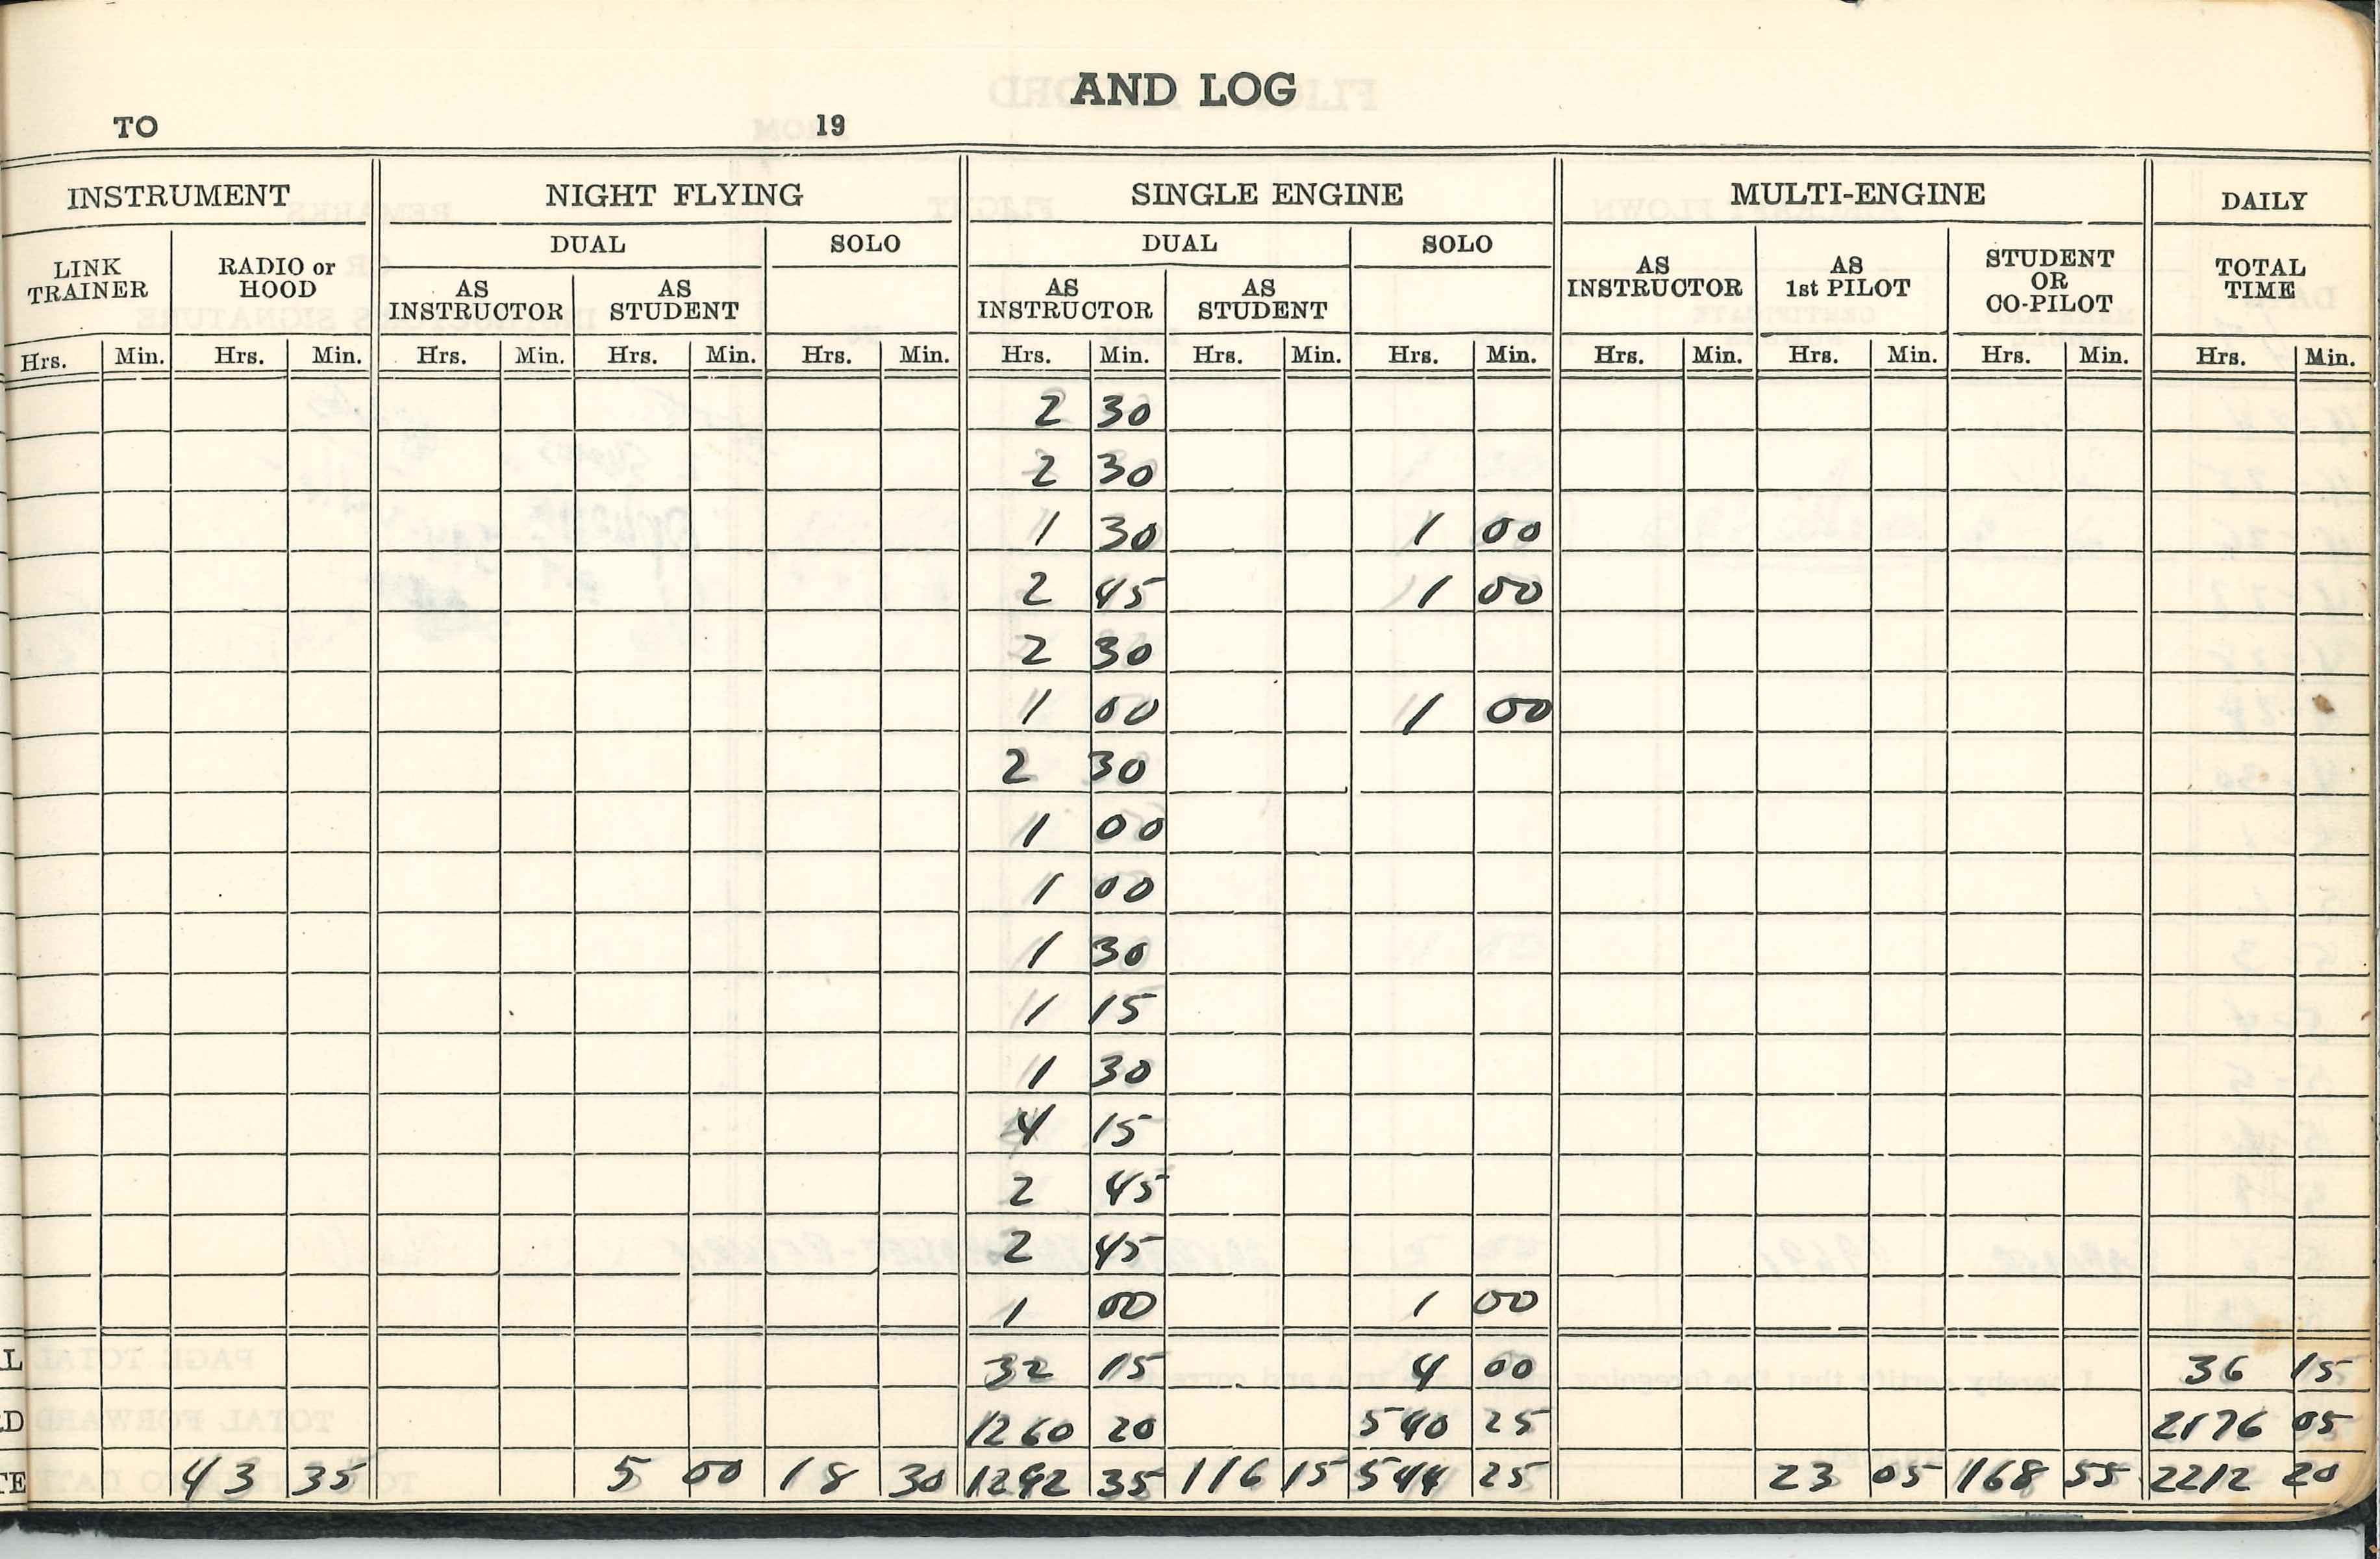 AND LOG
TO 19
INSTRUMENT NIGHT FLYING SINGLE ENGINE MULTI-ENGINE DAILY
DUAL SOLO DUAL SOLO
LINK TRAINER RADIO or HOOD AS INSTRUCTOR AS STUDENT AS INSTRUCTOR AS STUDENT AS INSTRUCTOR AS 1st PILOT STUDENT OR CO-PILOT TOTAL TIME
Hrs. Min. Hrs. Min. Hrs. Min. Hrs. Min. Hrs. Min. Hrs. Min. Hrs. Min. Hrs. Min. Hrs. Min. Hrs. Min. Hrs. Min. Hrs. Min.
2 30
2 30
1 30 1 00
2 45 1 00
2 30
1 00 1 00
2 30
1 00
1 00
1 30
1 15
1 30
4 15
2 45
2 45
1 00 1 00
L 32 15 4 00 36 15
D 1260 20 540 25 2176 05
TE 43 35 5 00 18 30 1292 35 116 15 544 25 23 05 168 55 2212 20